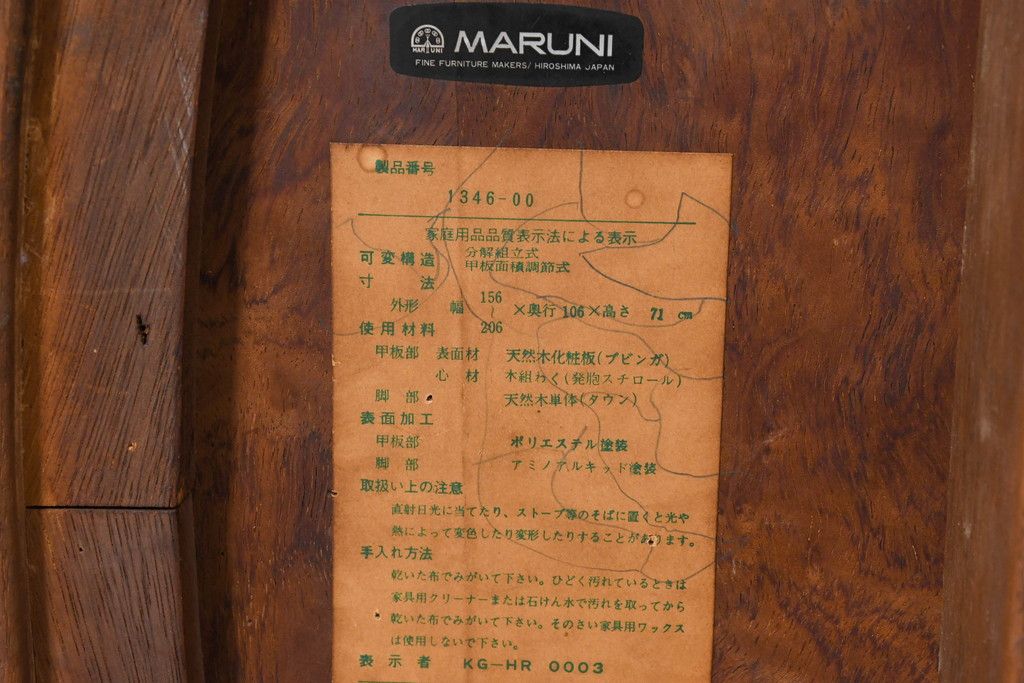 MARUNI
MARUNI
FINE FURNITURE MAKERS/ HIROSHIMA JAPAN
製品番号
1346-00
家庭用品品質表示法による表示
可変構造 分解組立式
甲板面積調節式
寸法
外形 幅 156〜206 ×奥行 106 ×高さ 71 cm
使用材料
甲板部 表面材 天然木化粧板(ブビンガ)
心材 木組わく(発胞スチロール)
脚部 天然木単体(タウン)
表面加工
甲板部 ポリエステル塗装
脚部 アミノアルキッド塗装
取扱い上の注意
直射日光に当てたり、ストーブ等のそばに置くと光や
熱によって変色したり変形したりすることがあります。
手入れ方法
乾いた布でみがいて下さい。ひどく汚れているときは
家具用クリーナーまたは石けん水で汚れを取ってから
乾いた布でみがいて下さい。そのさい家具用ワックス
は使用しないで下さい。
表示者 KG-HR 0003